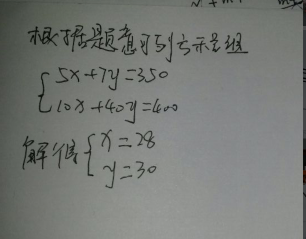 根据题意可列方程组
{5x+7y=350
10x+40y=400
解得{x=28
y=30